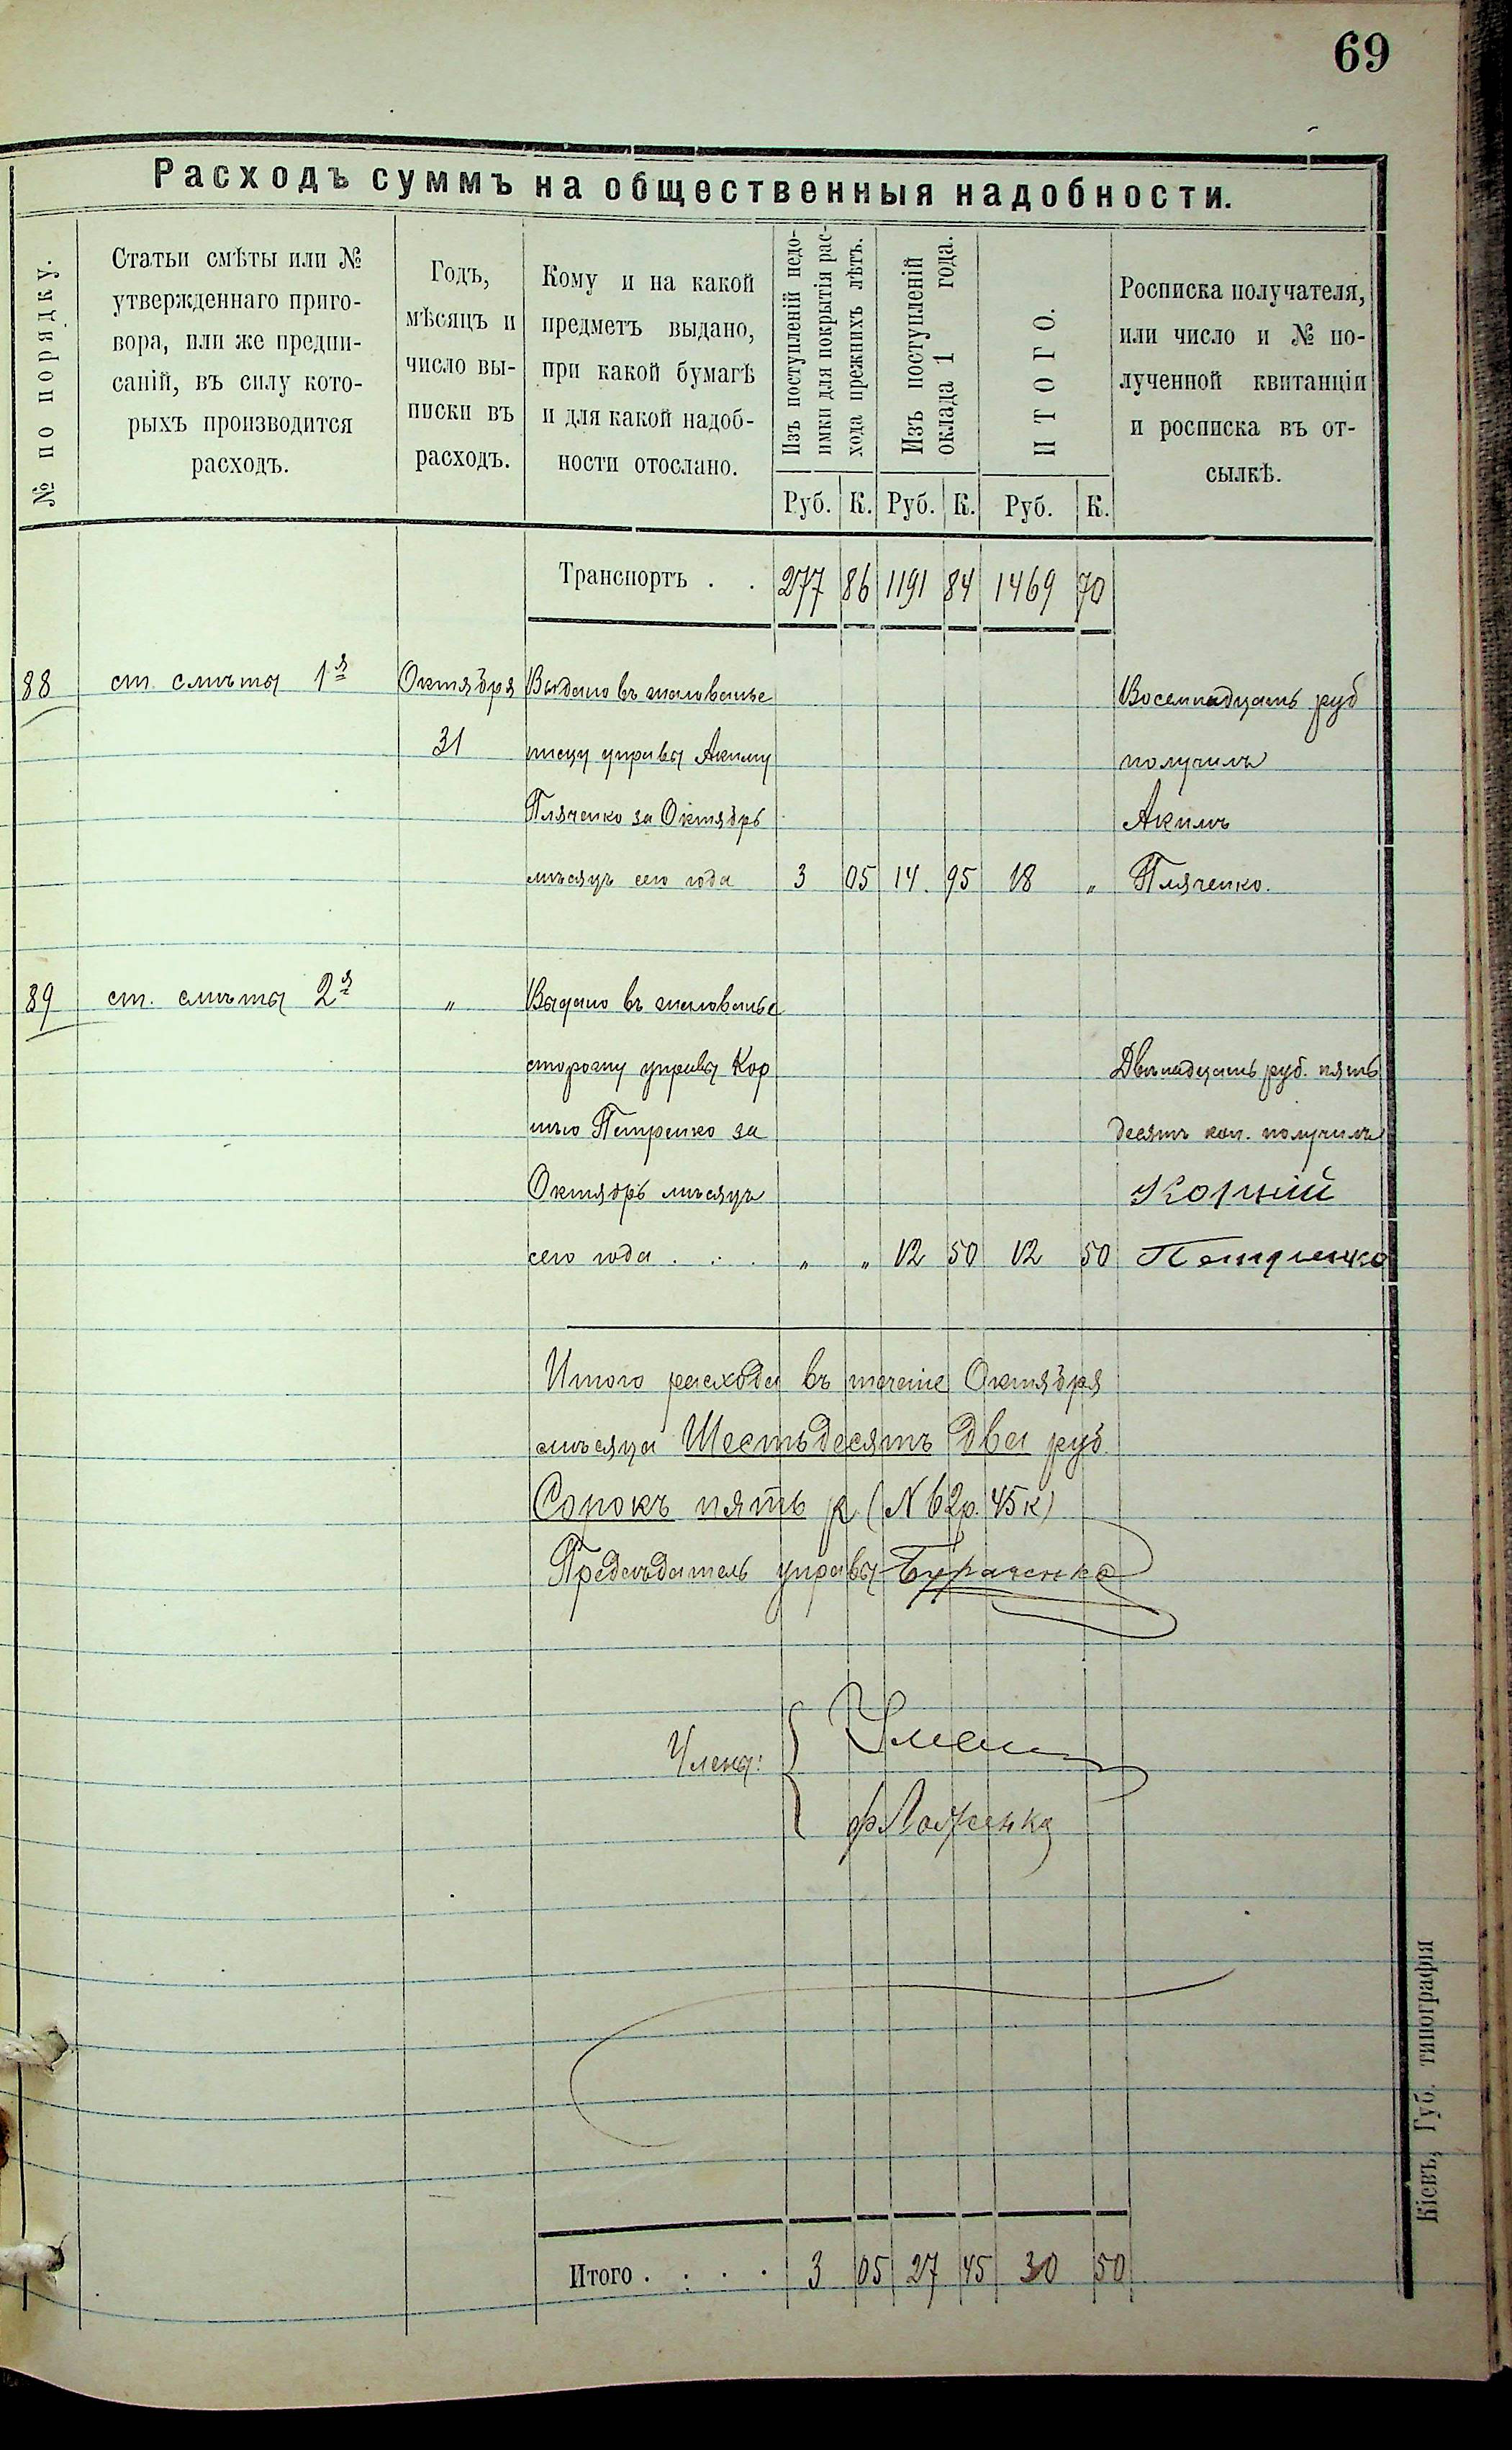 69
Расходъ суммъ на общественныя надобности.
№ по порядку.
Статьи смѣты или №
утвержденнаго приго-
вора, или же предпи-
саній, въ силу кото-
рыхъ производится
расходъ.
Годъ,
мѣсяцъ и
число вы-
писки въ
расходъ.
Кому и на какой
предметъ выдано,
при какой бумагѣ
и для какой надоб-
ности отослано.
Изъ поступленій недо-
имки для покрытія рас-
хода прежнихъ лѣтъ.
Изъ поступленій
оклада 1 года.
ИТОГО.
Росписка получателя,
или число и № по-
лученной квитанціи
и росписка въ от-
сылкѣ.
Руб. К. Руб. К. Руб. К.
Транспортъ . . 277 86 1191 84 1469 70
88 ст. смѣты 1я Октября Выдано въ жалованье Восемнадцать руб
31 писцу управы Акиму получилъ
Плаченко за Октябрь Акимъ
мѣсяцъ сего года 3 05 14. 95 18 „ Плаченко.
89 ст. смѣты 2я „ Выдано въ жалованье
сторожу управы Кор Двѣнадцать руб. пять
нѣю Петренко за десятъ коп. получилъ
Октябрь мѣсяцъ Корній
сего года . . . „ „ 12 50 12 50 Петренко
Итого расхода въ теченіе Октября
мѣсяца Шестьдесятъ два руб.
Сорокъ пять к (№ 62р. 45к)
Предсѣдатель управы Бураченко
Члены:
Итого . . . . 3 05 27 45 30 50
Кіевъ, Губ. типографія